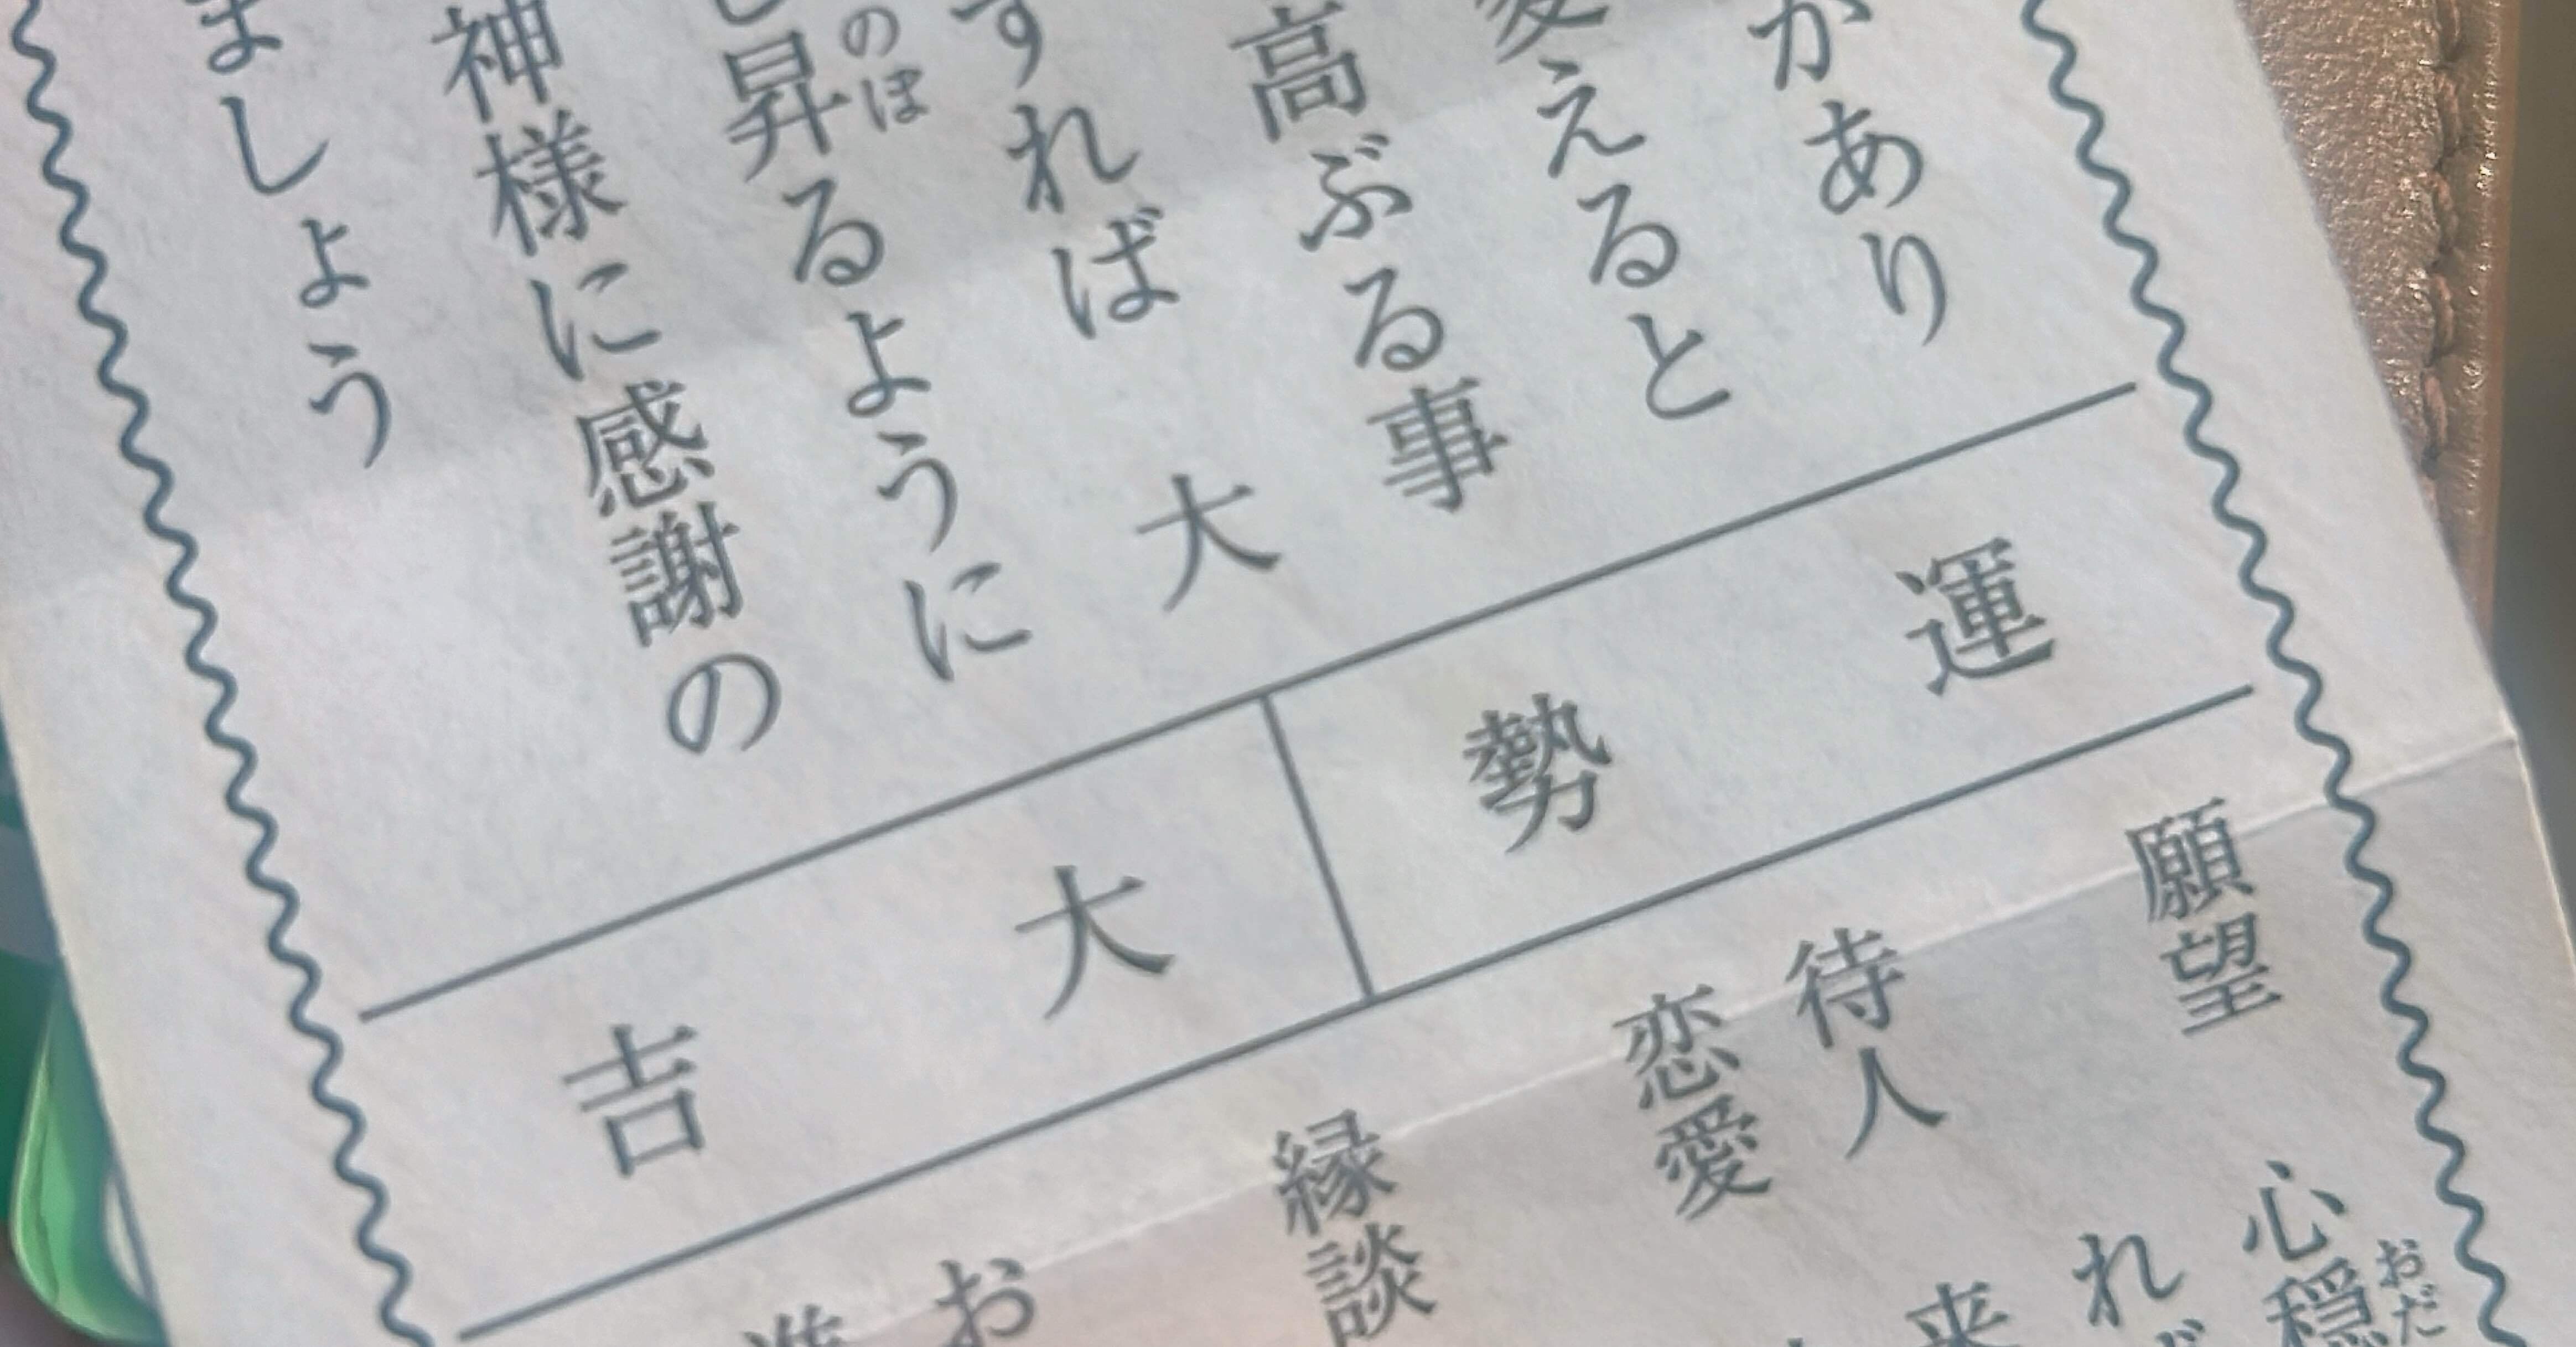 があり
えると
高ぶる事
大
すれば
昇るように
のぼ
神様に感謝の
ましょう
運勢
大吉
願望
心穏
おだ
れ
待人
来
恋愛
縁談
お